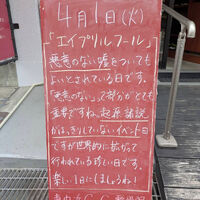 4月1日(火)
「エイプリルフール」
悪意のない嘘をついても
よいとされている日です。
「悪意のない」って部分がとても
重要ですね。起源諸説
がはっきりしていないイベント日
ですが世界的に広がって
行われている珍しい日です。
楽しい1日にしましょうね！